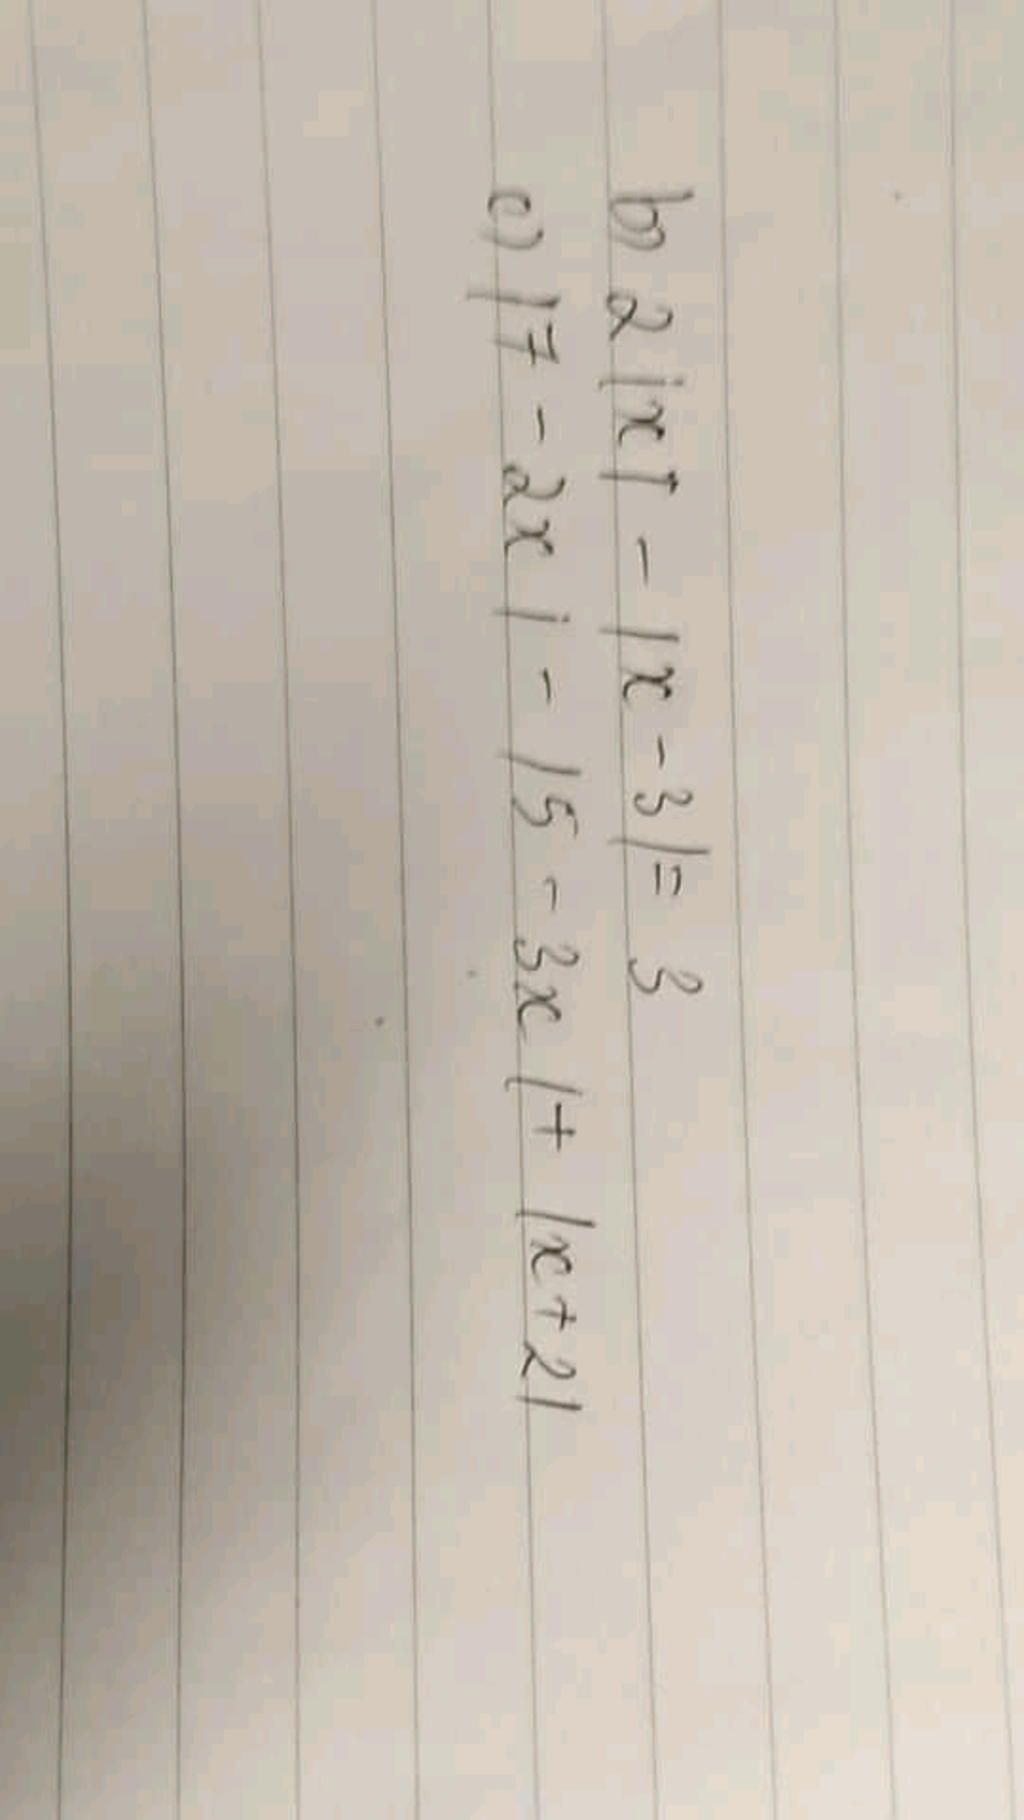 b) 2|x| - |x - 3| = 3
c) |7 - 2x| - |5 - 3x| + |x + 2|